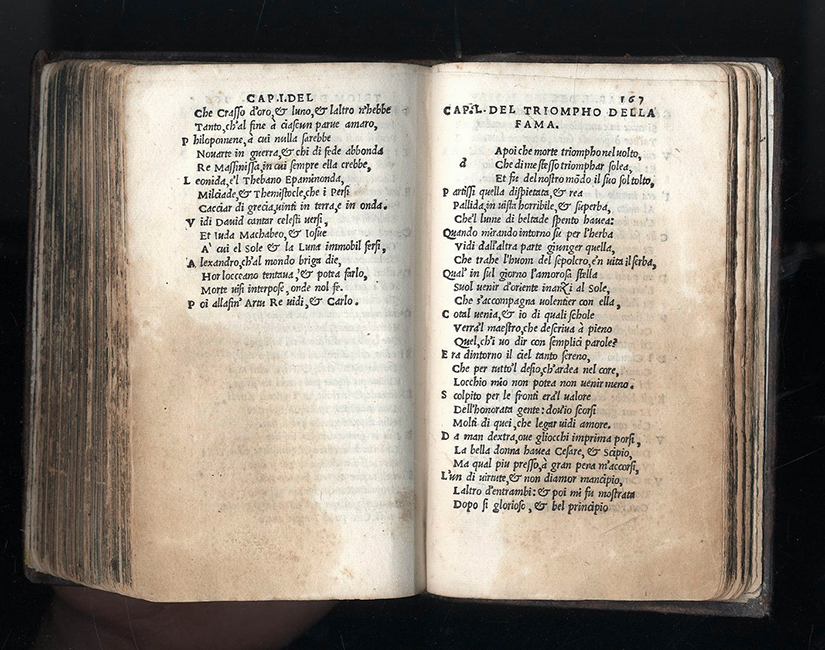 CAP.I.DEL
Che Crasso d'oro,& l'uno,& l'altro n'hebbe
Tanto,ch'al fine à ciascun parue amaro,
P hilopomene,à cui nulla sarebbe
Nouarte in guerra,& chi di fede abbonda
Re Massinissa,in cui sempre ella crebbe,
L eonida,e'l Thebano Epaminonda,
Milciade,& Themistocle,che i Persi
Cacciar di grecia,uinti in terra,e in onda.
V idi Dauid cantar celesti uersi,
Et Iuda Machabeo,& Iosue
A' cui el Sole & la Luna immobil fersi,
A lexandro,ch'al mondo briga die,
Hor locceano tentaua,& potea farlo,
Morte ui si interpose, onde nol fe.
P oi allafin' Artu Re uidi,& Carlo.
167
CAP.I. DEL TRIOMPHO DELLA
FAMA.
d A poi che morte triompho nel uolto,
Che di me stesso triomphar solea,
Et fu del nostro mõdo il suo sol tolto,
P artissi quella dispietata,& rea
Pallida,in uista horribile,& superba,
Che'l lume di beltade spento hauea:
Quando mirando intorno su per l'herba
Vidi dall'altra parte giunger quella,
Che trahe l'huom del sepolcro,e'n uita il serba,
Qual' in sul giorno l'amorosa stella
Suol uenir d'oriente inanzi al Sole,
Che s'accompagna uolentier con ella,
C otal uenia,& io di quali schole
Verra'l maestro,che descriua à pieno
Quel,ch'i uo dir con semplici parole?
E ra dintorno il ciel tanto sereno,
Che per tutto'l desio,ch'ardea nel core,
Locchio mio non potea non uenir meno.
S colpito per le fronti era'l ualore
Dell'honorata gente:dou'io scorsi
Molti di quei,che legar uidi amore.
D a man dextra,oue gliocchi imprima porsi,
La bella donna hauea Cesare,& Scipio,
Ma qual piu presso,à gran pena m'accorsi,
L'un di uirtute,& non d'amor mancipio,
Laltro d'entrambi:& poi mi fu mostrata
Dopo si glorioso,& bel principio